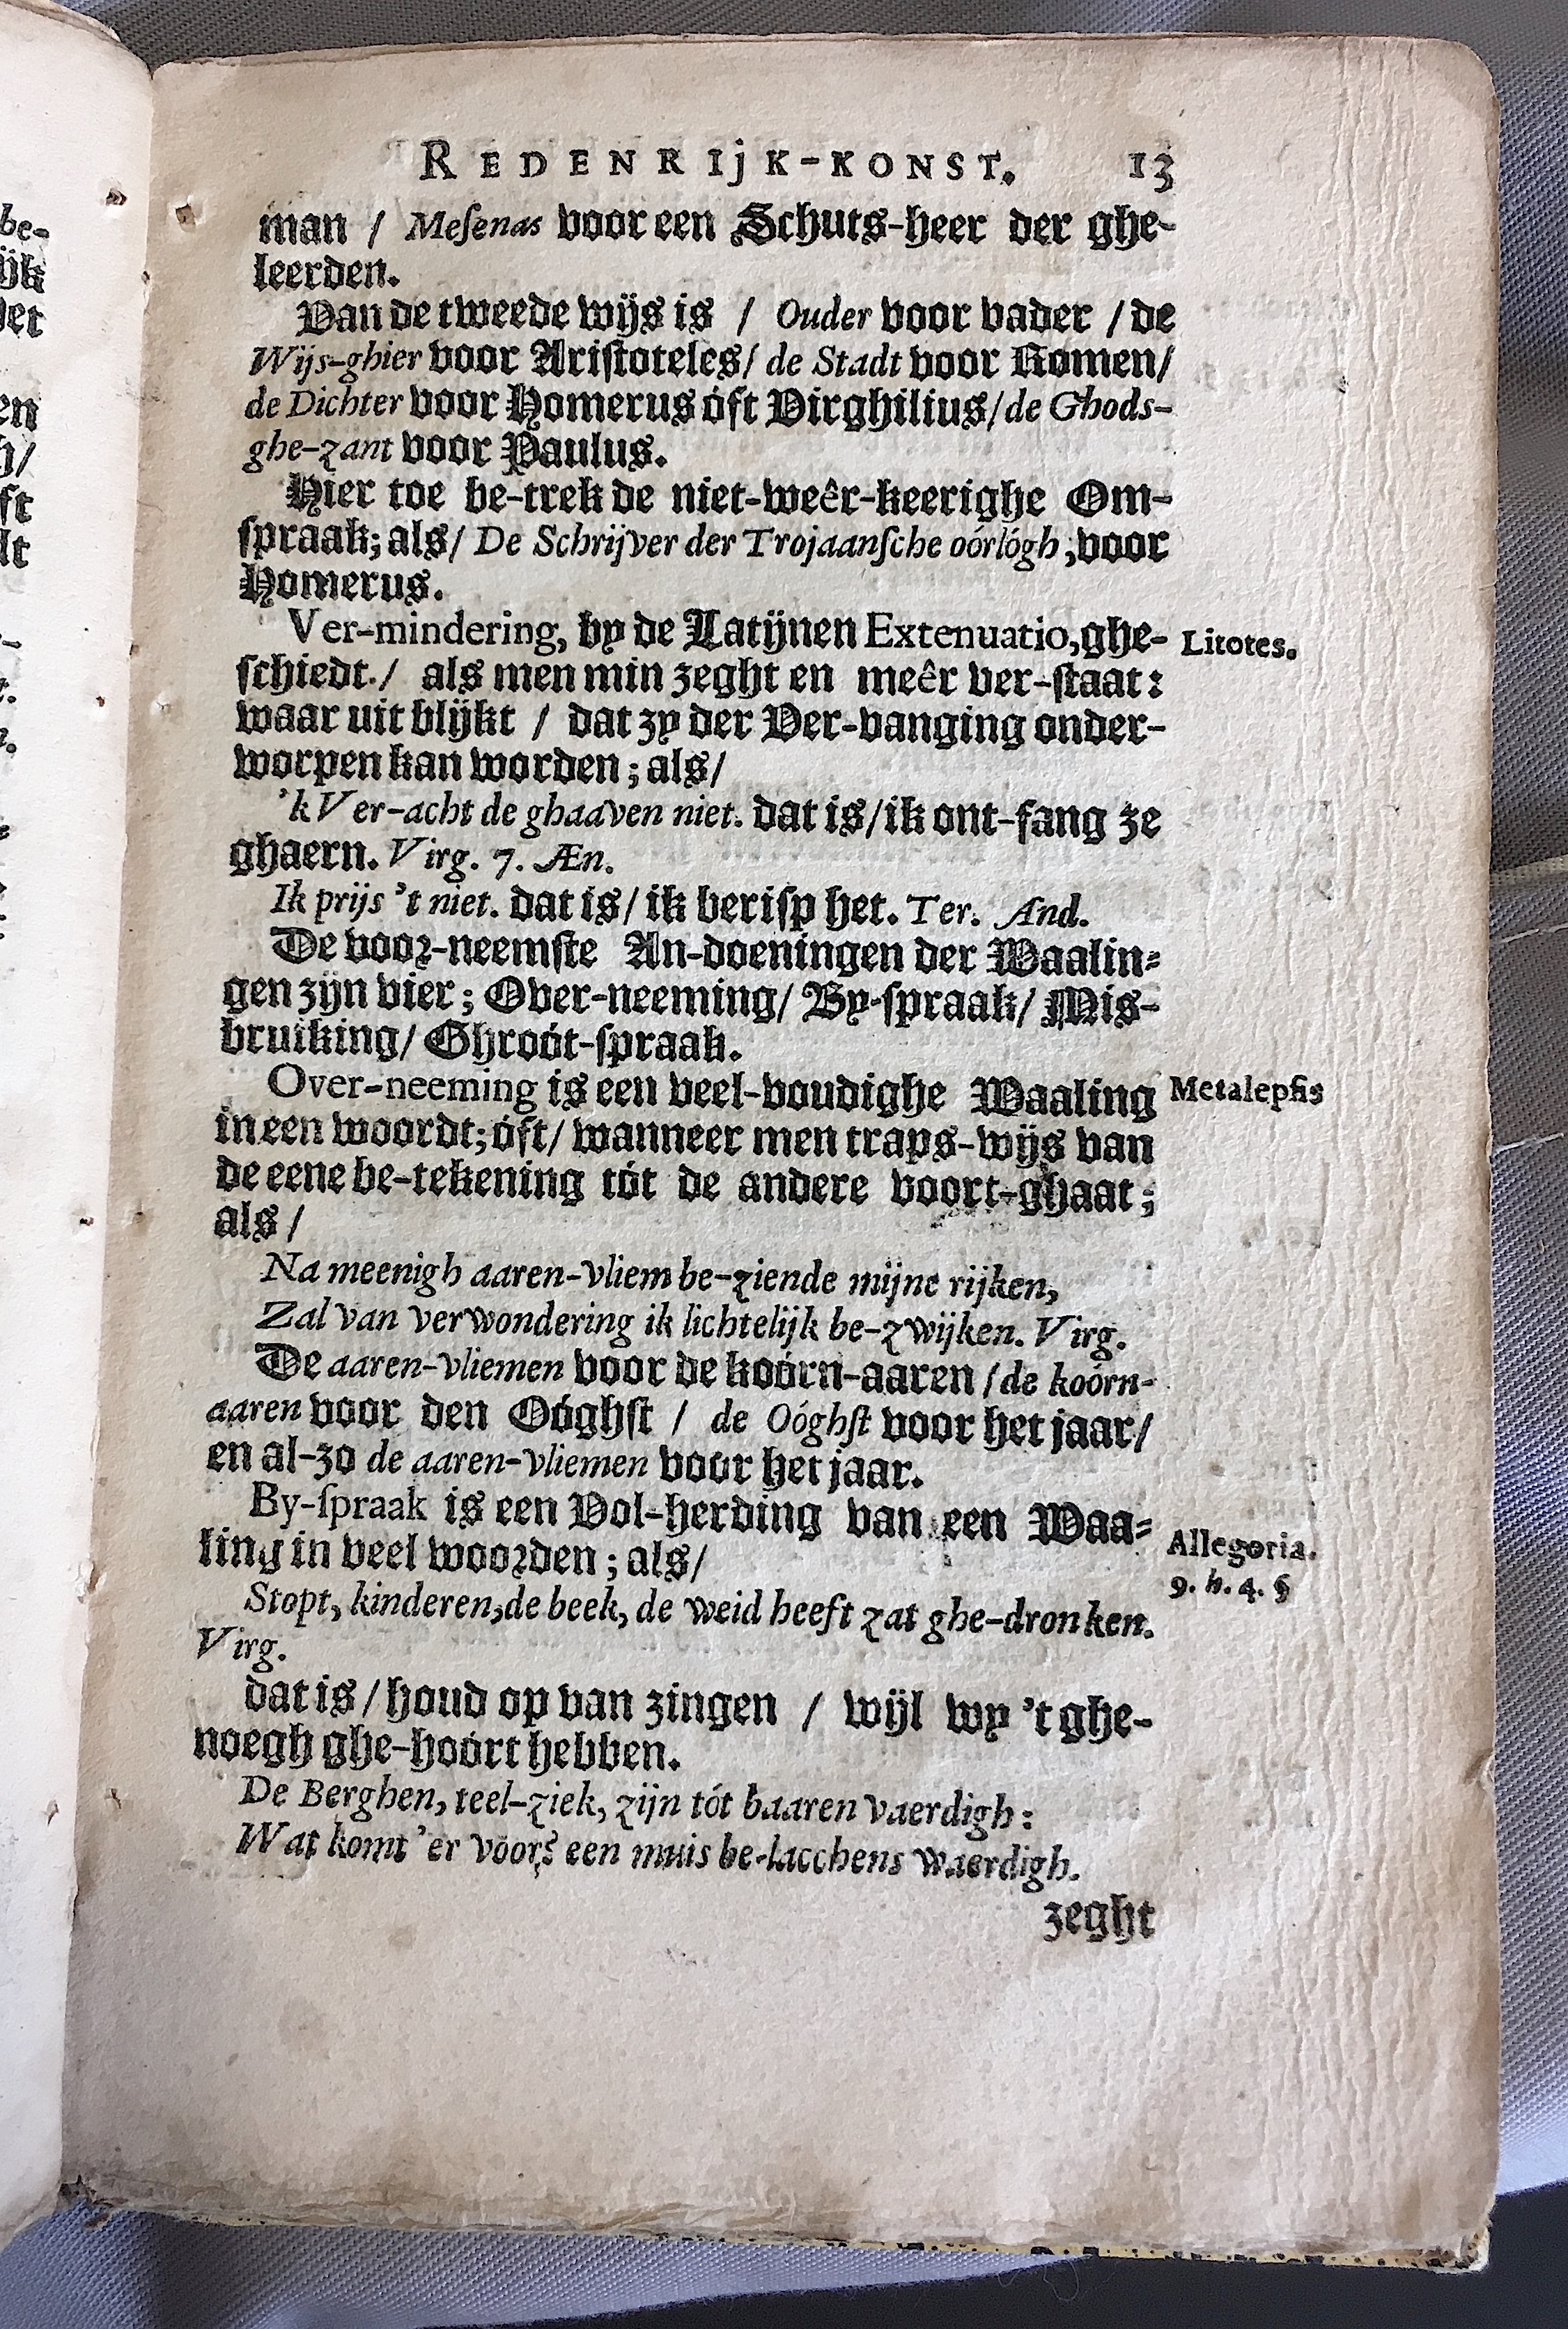 REDENRIjK-KONST. 13
man / Meſenas voor een Schuts-heer der ghe-
leerden.
Van de tweede wijs is / Ouder voor vader / de
Wijs-ghier voor Ariſtoteles/ de Stadt voor Romen/
de Dichter voor Homerus óft Virghilius/de Ghods-
ghe-zant voor Paulus.
Hier toe be-trek de niet-weêr-keerighe Om-
ſpraak; als/ De Schrijver der Trojaanſche oórlógh, voor
Homerus.
Ver-mindering, by de Latijnen Extenuatio, ghe-
ſchiedt./ als men min zeght en meêr ver-ſtaat:
waar uit blijkt / dat zy der Ver-vanging onder-
worpen kan worden; als/
'k Ver-acht de ghaaven niet. dat is/ik ont-fang ze
ghaern. Virg. 7. Æn.
Ik prijs 't niet. dat is/ ik beriſp het. Ter. And.
De voor-neemſte An-doeningen der Waalin-
gen zijn vier; Over-neeming/ By-ſpraak/ Mis-
bruiking/ Ghroót-ſpraak.
Over-neeming is een veel-voudighe Waaling
in een woordt; óft/ wanneer men traps-wijs van
de eene be-tekening tót de andere voort-ghaat;
als /
Na meenigh aaren-vliem be-ziende mijne rijken,
Zal van verwondering ik lichtelijk be-zwijken. Virg.
De aaren-vliemen voor de koórn-aaren / de koórn-
aaren voor den Oóghſt / de Oóghſt voor het jaar/
en al-zo de aaren-vliemen voor het jaar.
By-ſpraak is een Vol-herding van een Waa-
ling in veel woorden; als/
Stopt, kinderen, de beek, de weid heeft zat ghe-dronken.
Virg.
dat is / houd op van zingen / wijl wy 't ghe-
noegh ghe-hoórt hebben.
De Berghen, teel-ziek, zijn tót baaren vaerdigh:
Wat komt 'er voor? een muis be-lacchens waerdigh.
zeght
Litotes.
Metalepſis
Allegoria.
9. h. 4. §
be-
ijk